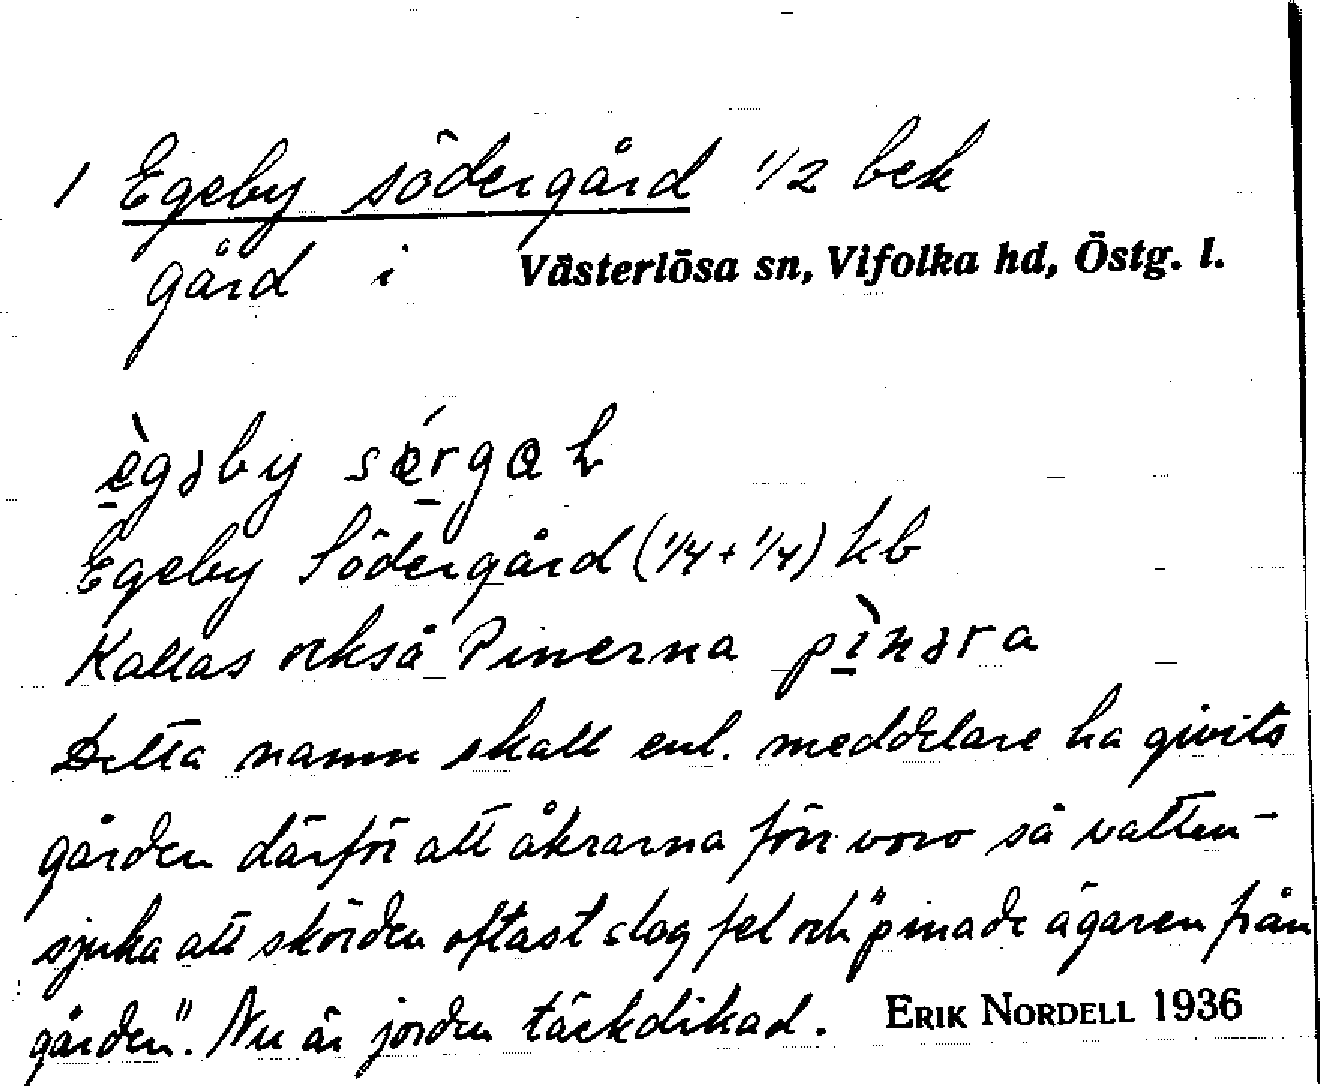 1 Egeby södergård 1/2 bek
gård i Västerlösa sn, Vifolka hd, Östg. l.
ègəby sǿrgaḷ
Egeby Södergård (1/4+1/4) kb
Kallas också Pinerna pìnəra
Detta namn skall enl. meddelare ha givits
gården därför att åkrarna förr voro så vatten-
sjuka att skörden oftast slog fel och "pinade ägaren från
gården". Nu är jorden täckdikad. ERIK NORDELL 1936